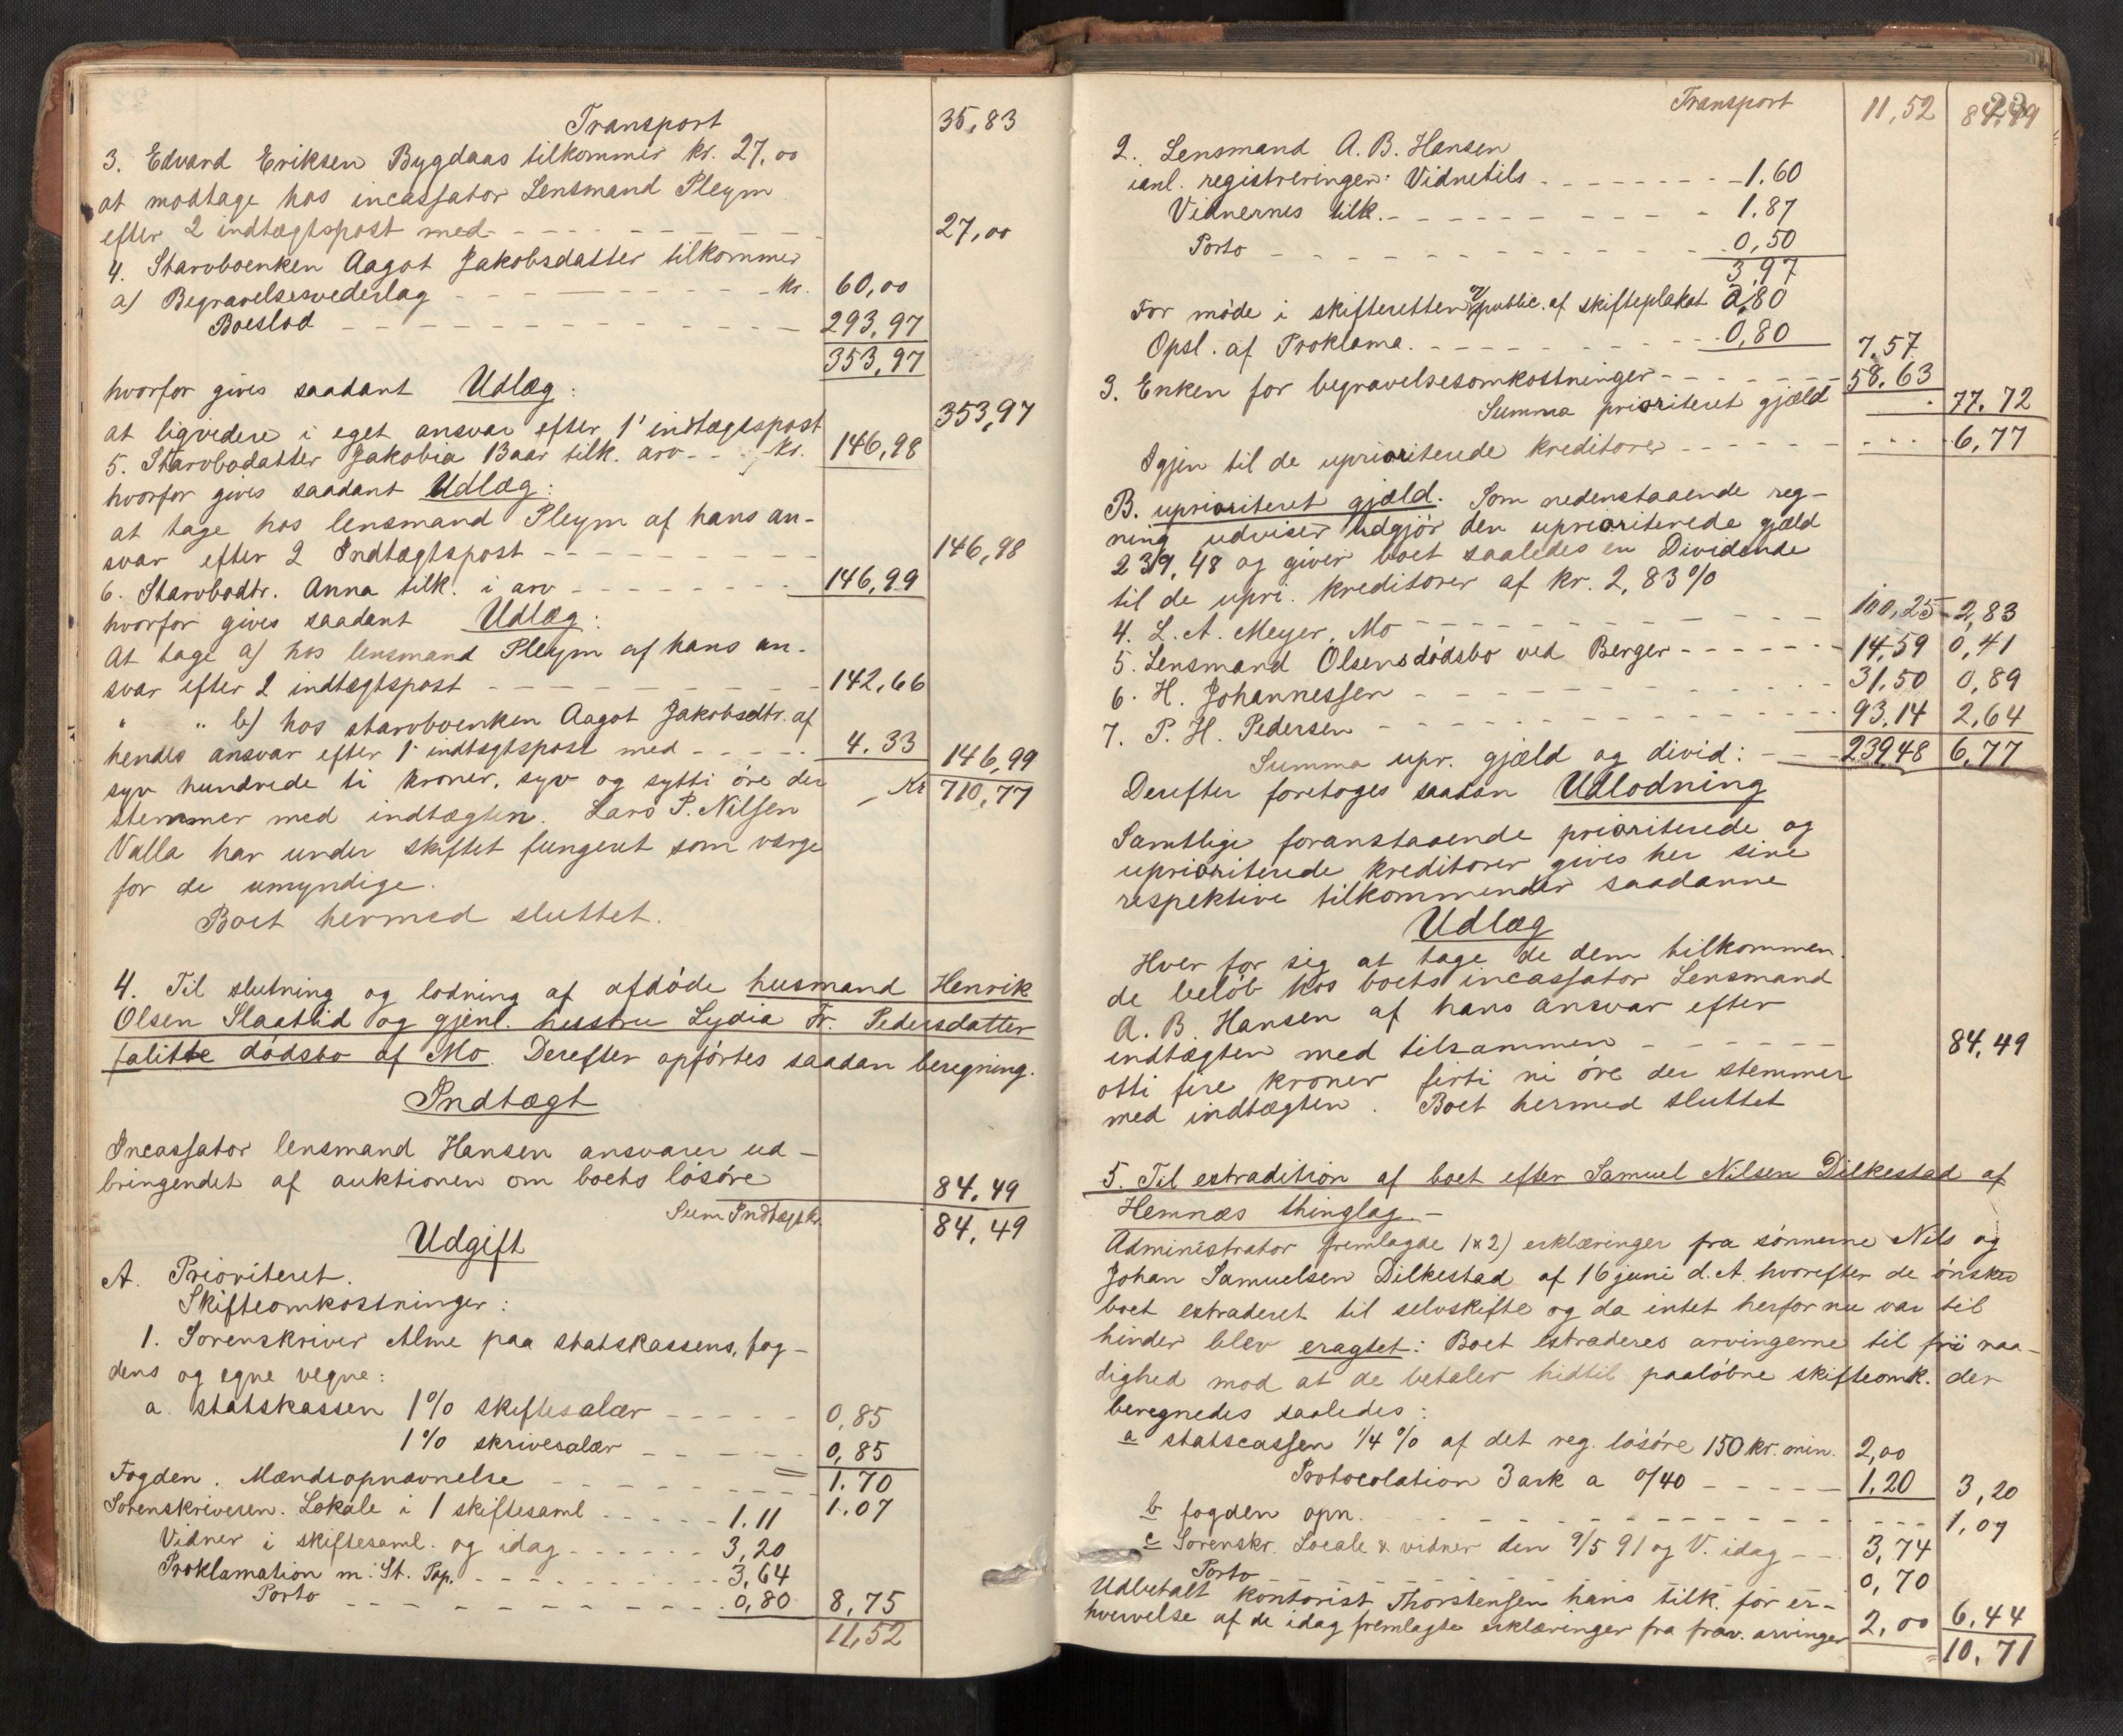 Transport 35,83
3. Edvard Eriksen Bygdaas tilkommer kr. 27,00
at modtage hos incassator Lensmand Pleym
efter 2 indtægtspost med 27,00
4. Stervboenken Aagot Jakobsdatter tilkommer
a) Begravelsesvederlag kr. 60,00
Boeslod 293,97
353,97
hvorfor gives saadant Udlæg:
at liqvidere i eget ansvar efter 1' indtægtspost 353,97
5. Stervbodatter Jakobia 13 aar tilk. arv kr. 146,98
hvorfor gives saadant Udlæg:
at tage hos lensmand Pleym af hans an-
svar efter 2 Indtægtspost 146,98
6. Stervbodtr. Anna tilk. i arv 146,99
hvorfor gives saadant Udlæg:
At tage a) hos lensmand Pleym af hans an-
svar efter 2 indtægtspost 142,66
" " b) hos stervboenken Aagot Jakobsdtr. af
hendes ansvar efter 1' indtægtspost med 4.33 146,99
syv hundrede ti kroner, syv og sytti øre der Kr 710,77
stemmer med indtægten. Lars P. Nilsen
Valla har under skiftet fungeret som værge
for de umyndige.
Boet hermed sluttet.
4. Til slutning og lodning af afdøde husmand Henrik
Olsen Slaatlid og gjenl. hustru Lydia Fr. Pedersdatter
falitte dødsbo af Mo. Derefter opførtes saadan beregning.
Indtægt
Incassator lensmand Hansen ansvarer ud-
bringendet af auktionen om boets løsøre 84,49
Sum Indtægt kr. 84,49
Udgift
A. Prioriteret.
Skifteomkostninger:
1. Sorenskriver Alme paa statskassens, fog-
dens og egne vegne:
a. statskassen 1% skiftesalær 0,85
1% skrivesalær 0,85
1.70
Fogden. Mændsopnævnelse 1.07
Sorenskriveren. Lokale i 1 skiftesaml 1.11
Vidner i skiftesaml. og idag 3,20
Proklamation m: St. Pap. 3,64
Porto 0,80 8,75
11,52
Transport 11,52 84,49
2. Lensmand A. B. Hansen
ianl. registreringen: Vidnetils 1.60
Vidnernes tilk. 1,87
Porto 0,50
3,97
For møde i skifteretten m/public. af skifteplakat 2,80
Opsl. af Proklama. 0,80 7,57
3. Enken for begravelsesomkostninger 58,63
Summa prioriteret gjæld 77.72
Igjen til de uprioriterede kreditorer 6,77
B. uprioriteret gjæld. Som nedenstaaende reg-
ning udviser udgjør den uprioriterede gjæld
239,48 og giver boet saaledes en Dividende
til de upri. kreditorer af kr. 2,83%
4. L. A. Meyer, Mo 100,25 2,83
5. Lensmand Olsens dødsbo ved Berger 14,59 0,41
6. H. Johannessen 31,50 0,89
7. P. H. Pedersen 93,14 2,64
Summa upr. gjæld og divid: 239,48 6,77
Derefter foretoges saadan Udlodning
Samtlige foranstaaende prioriterede og
uprioriterede kreditorer gives her sine
respektive tilkommender saadanne
Udlæg
Hver for sig at tage de dem tilkommen-
de beløb hos boets incassator Lensmand
A. B. Hansen af hans ansvar efter
indtægten med tilsammen 84,49
otti fire kroner firti ni øre der stemmer
med indtægten. Boet hermed sluttet
5. Til extradition af boet efter Samuel Nilsen Dilkestad af
Hemnæs thinglag.
Administrator fremlagde (x2) erklæringer fra sønnerne Nils og
Johan Samuelsen Dilkestad af 16 juni d. A. hvorefter de ønsker
boet extraderet til selvskifte og da intet herfor nu var til
hinder blev eragtet: Boet extraderes arvingerne til fri raa-
dighed mod at de betaler hidtil paaløbne skifteomk. der
beregnedes saaledes:
a statscassen 1/4 % af det reg. løsøre 150 kr. min. 2,00
Protocolation 3 ark a 0/40 1.20 3,20
b fogden opn. 1,07
c Sorenskr. Locale & vidner den 9/5 91 og V. idag 3,74
Porto 0,70
Udbetalt kontorist Thorstensen hans tilk. for er-
hvervelse af de idag fremlagte erklæringer fra frav. arvinger 2,00 6,44
10,71